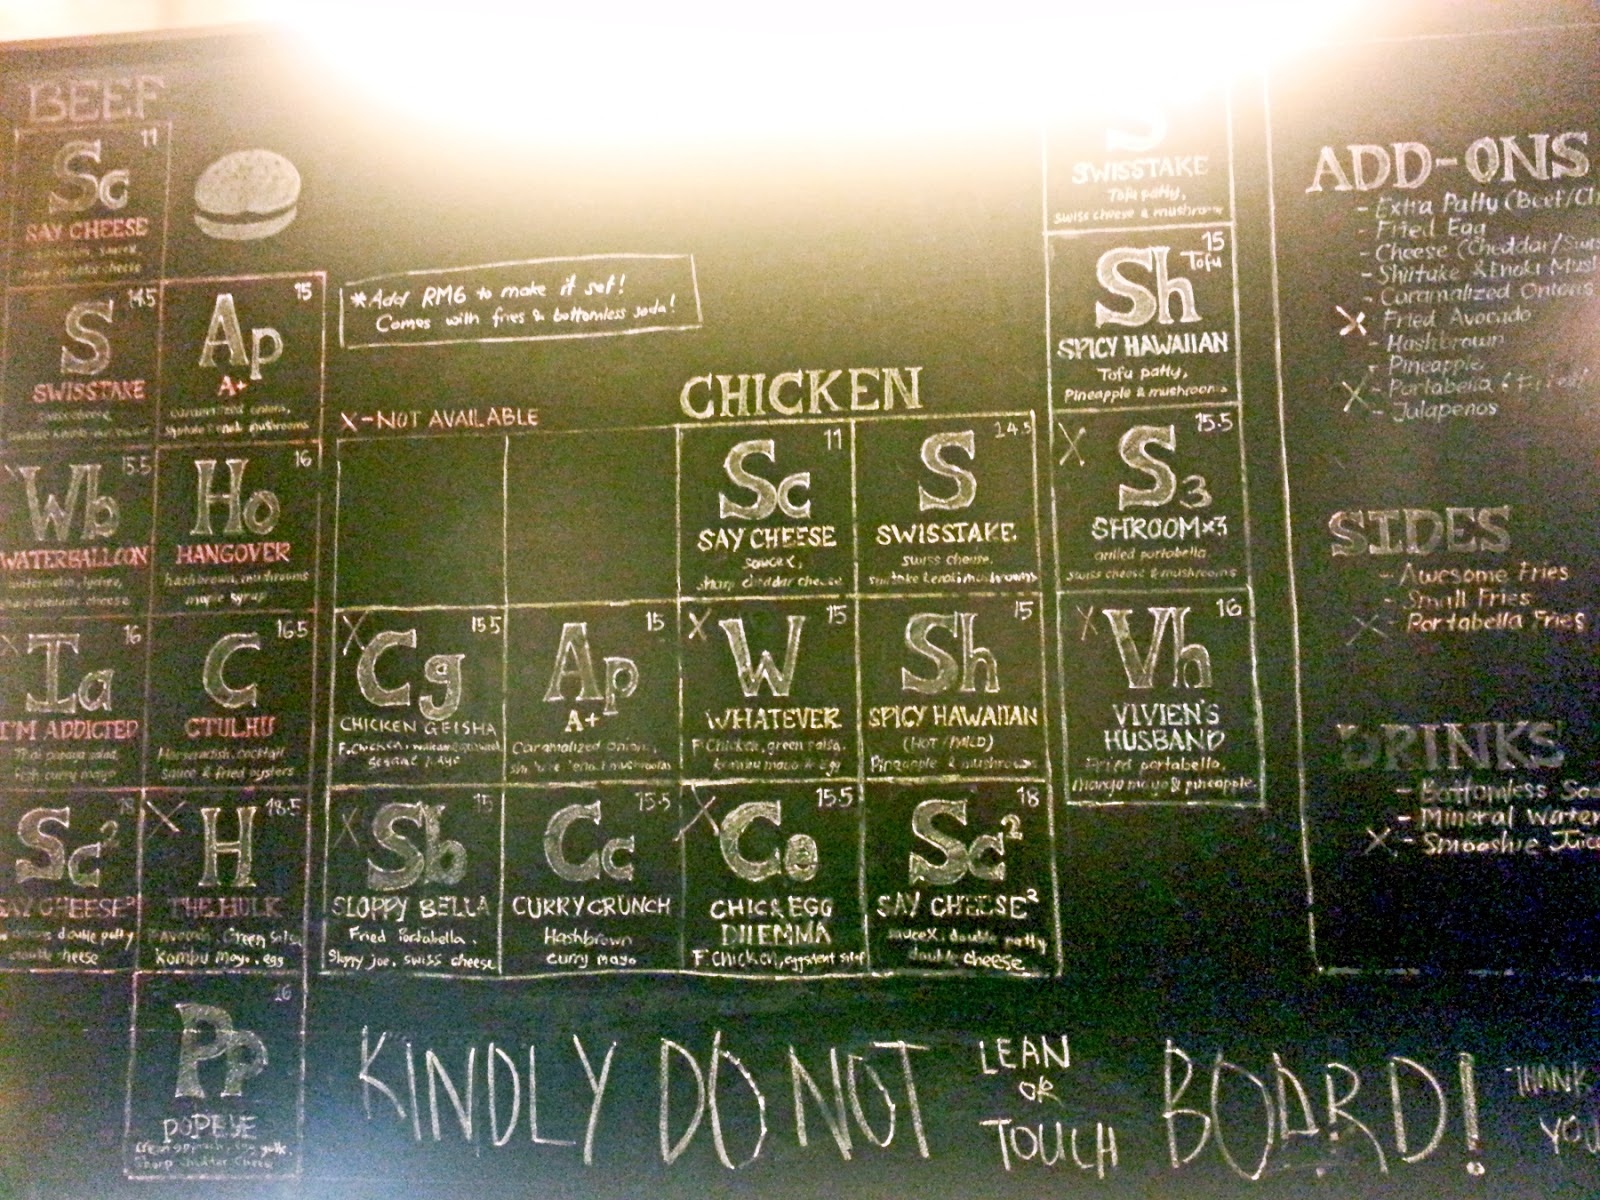 BEEF
11
Sc
SAY CHEESE
cheese
14.5
S
SWISSTAKE
15
Ap
A+
caramalized onions,
mushrooms
15.5
Wb
WATERBALLOON
watermelon, lychee,
sharp cheddar cheese
16
Ho
HANGOVER
hashbrown, mushrooms
maple syrup
X
16
Ia
I'M ADDICTED
Thai papaya salad,
fish curry mayo
16.5
C
CTULHU
Horseradish, cocktail
sauce & fried oysters
Sc²
SAY CHEESE²
double patty
cheese
X
18.5
H
THE HULK
Avocado, Green Salsa
Kombu mayo, egg
16
Pp
POPEYE
Sharp Cheddar Cheese
*Add RM6 to make it set!
Comes with fries & bottomless soda!
X-NOT AVAILABLE
CHICKEN
11
Sc
SAY CHEESE
sauce X,
sharp cheddar cheese
14.5
S
SWISSTAKE
swiss cheese,
X
15.5
Cg
CHICKEN GEISHA
F. Chicken,
sesame mayo
15
Ap
A+
Caramalized onions,
mushrooms
X
15
W
WHATEVER
F. Chicken, green salsa,
kombu mayo & Egg
15
Sh
SPICY HAWAIIAN
(HOT/MILD)
Pineapple & mushrooms
X
15
Sb
SLOPPY BELLA
Fried Portabella,
Sloppy joe, swiss cheese
15.5
Cc
CURRY CRUNCH
Hashbrown
curry mayo
X
15.5
Ce
CHIC & EGG
DILEMMA
F. Chicken,
18
Sc²
SAY CHEESE²
sauce X, double patty
double cheese
S
SWISSTAKE
Tofu patty,
swiss cheese & mushroom
15
Tofu
Sh
SPICY HAWAIIAN
Tofu patty,
Pineapple & mushrooms
X
15.5
S3
SHROOM×3
grilled portabella
swiss cheese & mushrooms
X
16
Vh
VIVIEN'S
HUSBAND
Fried portabella,
mango mayo & pineapple
ADD-ONS
- Extra Patty (Beef/Ch
- Fried Egg
- Cheese (Cheddar/Swis
- Shiitake & Enoki Mus
- Caramalized Onions
X - Fried Avocado
- Hashbrown
- Pineapple
X - Portabella
- Jalapenos
SIDES
- Awesome Fries
- Small Fries
X - Portabella Fries
DRINKS
- Bottomless So
- Mineral Water
X - Smooshie Juice
KINDLY DO NOT LEAN OR TOUCH BOARD! THANK YOU